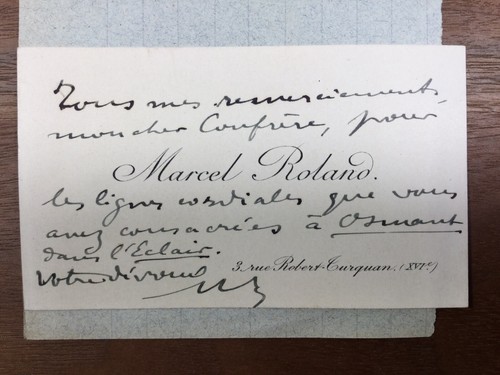 Tous mes remerciements
mon cher Confrère, pour
Marcel Roland.
les lignes cordiales que vous
avez consacrées à Osmant
dans l'Eclair.
Votre dévoué
3, rue Robert-Turquan. (XVIe)